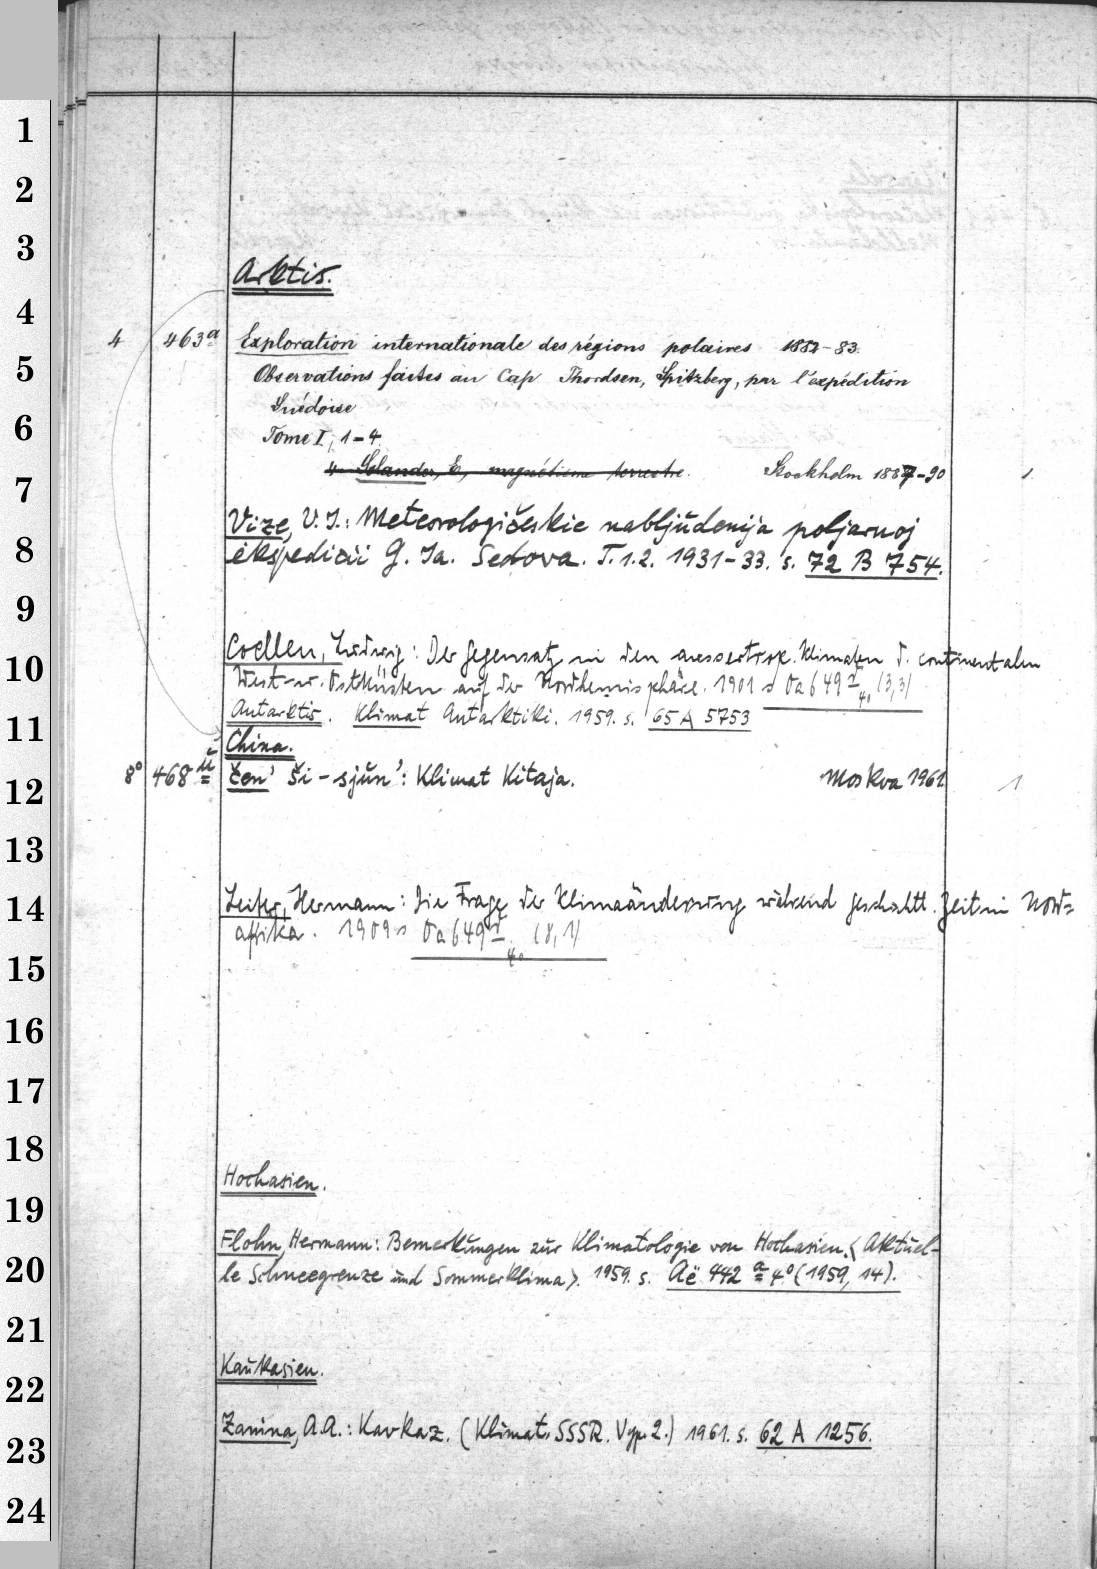 1
2
3
Arktis.
4
4 463a Exploration internationale des régions polaires 1882-83.
5
Observations faites au Cap Thordsen, Spitzberg, par l'expédition
Suédoise
6
Tome I, 1-4.
4. Solander, E., magnétisme terrestre. Stockholm 1887-90 1
7
Vize, V. J.: Meteorologičeskie nabljudenija poljarnoj
8
ėkspedicii G. Ja. Sedova. T. 1. 2. 1931-33. s. 72 B 754.
9
Coellen, Ludwig: Der Gegensatz in den aussertrop. Klimaten d. continentalen
10
West- u. Ostküsten auf der Nordhemisphäre. 1901 s Oa 649 4° (3,3)
Antarktis. Klimat Antarktiki. 1959. s. 65 A 5753
11
China.
8° 468 Čen' Ši-sjun': Klimat Kitaja. Moskva 1961 1
12
13
Leiter, Hermann: Die Frage der Klimaänderung während geschichtl. Zeit in Nord=
14
afrika. 1909 s Oa 649 4° (8,1)
15
16
17
18
Hochasien.
19
Flohn, Hermann: Bemerkungen zur Klimatologie von Hochasien. <Aktuel-
20
le Schneegrenze und Sommerklima>. 1959. s. Aë 442 a 4° (1959, 14).
21
Kaukasien.
22
Zanina, A.A.: Kavkaz. (Klimat. SSSR. Vyp. 2.) 1961. s. 62 A 1256.
23
24